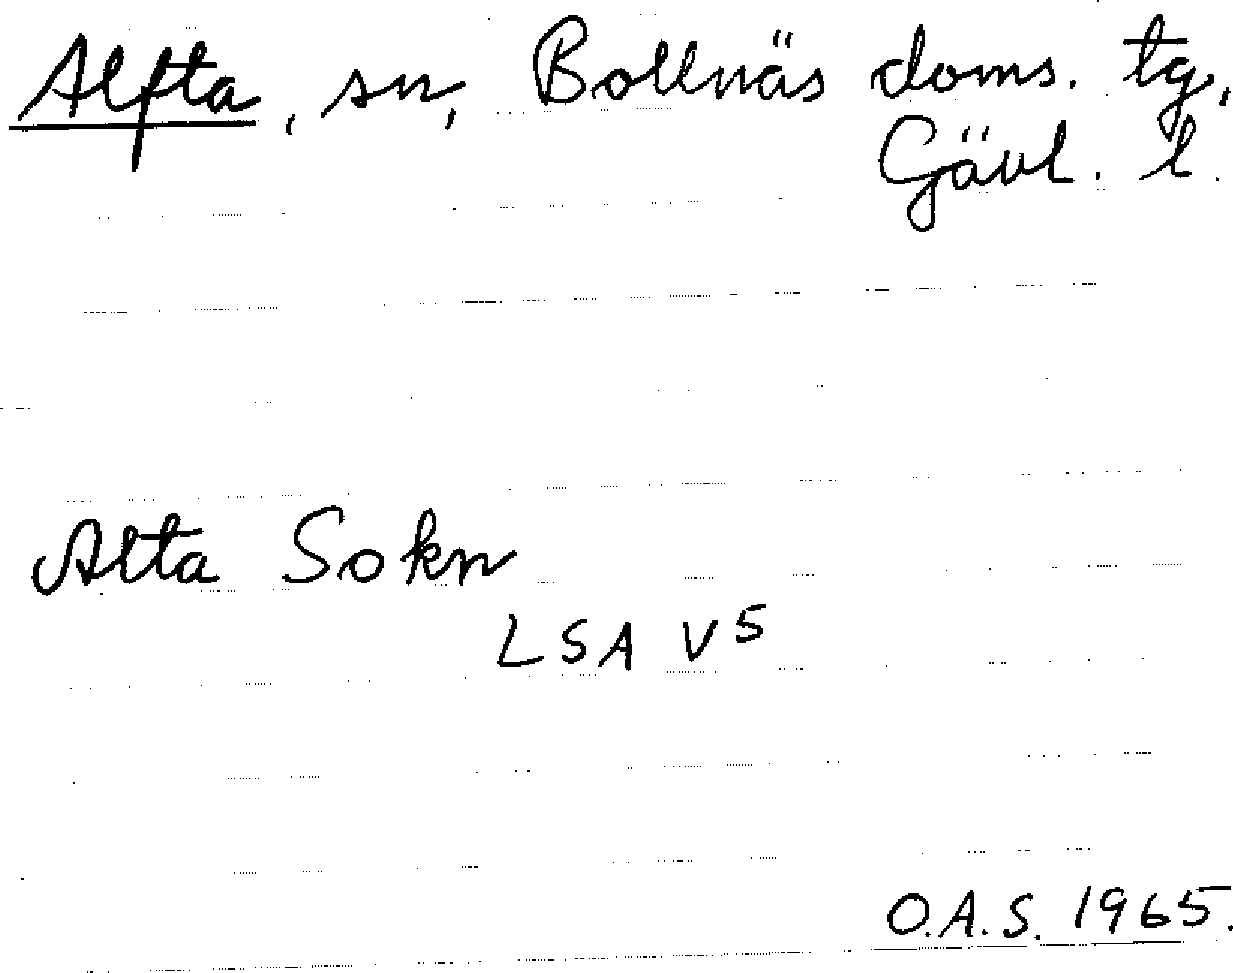 Alfta, sn, Bollnäs doms. tg,
Gävl. l.
Alta Sokn
LSA V5
O.A.S. 1965.